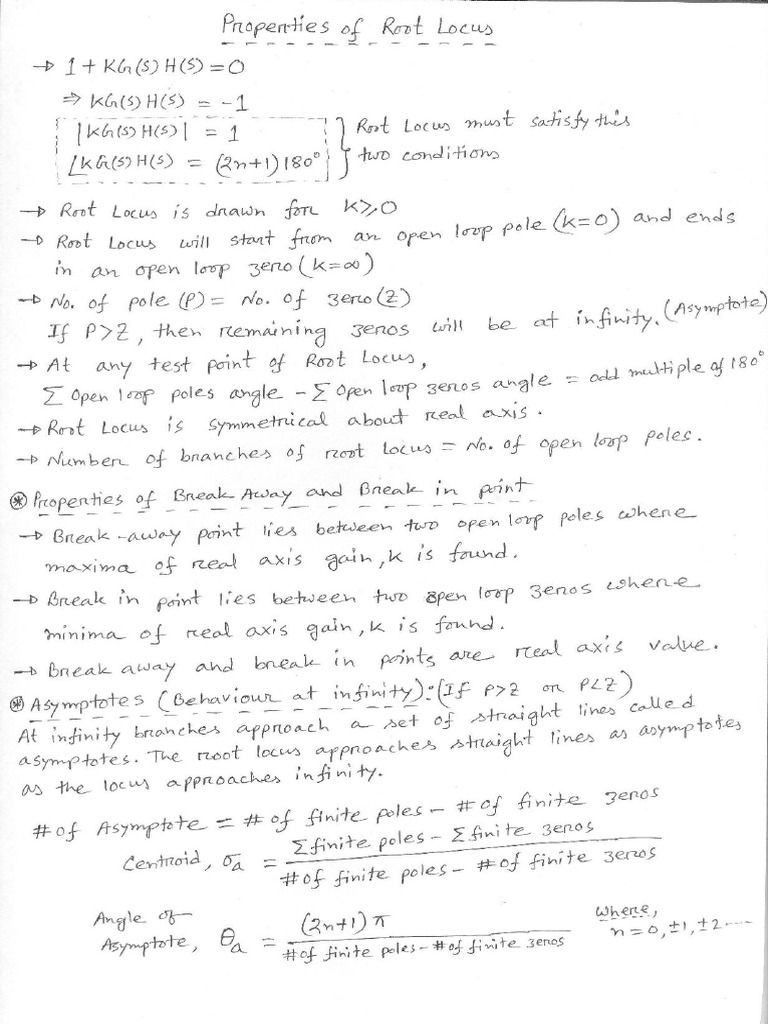 Properties of Root Locus
→ 1 + KG(s) H(s) = 0
⇒ KG(s) H(s) = -1
|KG(s) H(s)| = 1
∠KG(s) H(s) = (2n+1) 180°
} Root Locus must satisfy this
two conditions
→ Root Locus is drawn for K≥0
→ Root Locus will start from an open loop pole (k=0) and ends
in an open loop zero (k=∞)
→ No. of pole (P) = No. of zero (Z)
If P>Z, then remaining zeros will be at infinity. (Asymptote)
→ At any test point of Root Locus,
Σ Open loop poles angle - Σ Open loop zeros angle = odd multiple of 180°
→ Root Locus is symmetrical about real axis.
→ Number of branches of root locus = No. of open loop poles.
⊛ Properties of Break Away and Break in point
→ Break-away point lies between two open loop poles where
maxima of real axis gain, k is found.
→ Break in point lies between two open loop zeros where
minima of real axis gain, k is found.
→ Break away and break in points are real axis value.
⊛ Asymptotes (Behaviour at infinity): (If P>Z or P<Z)
At infinity branches approach a set of straight lines called
asymptotes. The root locus approaches straight lines as asymptotes
as the locus approaches infinity.
# of Asymptote = # of finite poles - # of finite zeros
Centroid, σa = Σ finite poles - Σ finite zeros
# of finite poles - # of finite zeros
Angle of
Asymptote, θa = (2n+1) π
# of finite poles - # of finite zeros
where,
n = 0, ±1, ±2 ----